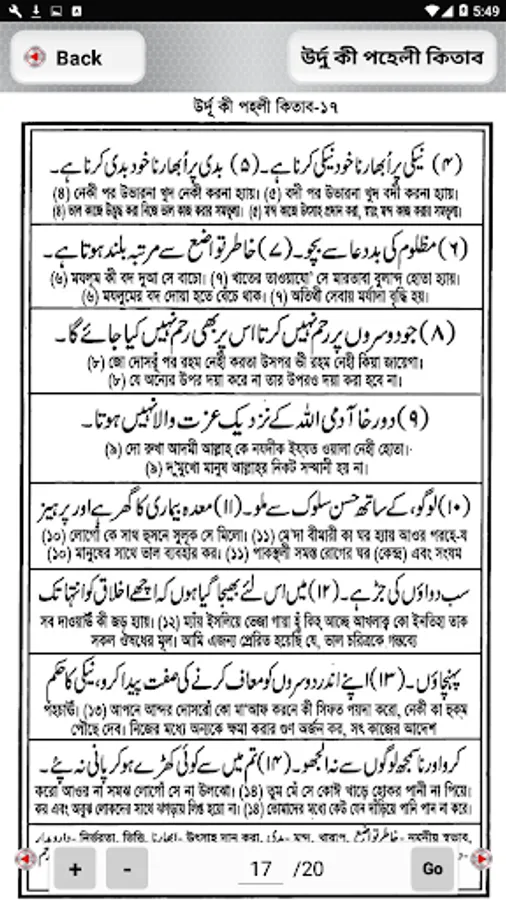 5:49
Back
উর্দু কী পহেলী কিতাব
উর্দূ কী পহলী কিতাব-১৭
(۴) نیکی پر اُبھارنا خود نیکی کرنا ہے۔ (۵) بدی پر اُبھارنا خود بدی کرنا ہے۔
(৪) নেকী পর উভারনা খুদ নেকী করনা হ্যায়। (৫) বদী পর উভারনা খুদ বদী করনা হ্যায়।
(৪) ভাল কাজে উদ্বুদ্ধ করা নিজে ভাল কাজ করার সমতুল্য। (৫) মন্দ কাজে উৎসাহ প্রদান করা, স্বয়ং মন্দ কাজ করার সমতুল্য।
(۶) مظلوم کی بددعا سے بچو۔ (۷) خاطر تواضع سے مرتبہ بلند ہوتا ہے۔
(৬) মযলূম কী বদ দুআ সে বাচো। (৭) খাতের তাওয়াযো' সে মারতাবা বুলান্দ হোতা হ্যায়।
(৬) মযলুমের বদ দোয়া হতে বেঁচে থাক। (৭) অতিথী সেবায় মর্যাদা বৃদ্ধি হয়।
(۸) جو دوسروں پر رحم نہیں کرتا اس پر بھی رحم نہیں کیا جائے گا۔
(৮) জো দোসরূঁ পর রহম নেহী করতা উসপর ভী রহম নেহী কিয়া জায়েগা।
(৮) যে অন্যের উপর দয়া করে না তার উপরও দয়া করা হবে না।
(۹) دو رخا آدمی اللہ کے نزدیک عزت والا نہیں ہوتا۔
(৯) দো রুখা আদমী আল্লাহ কে নযদীক ইয্যত ওয়ালা নেহী হোতা।
(৯) দু'মুখো মানুষ আল্লাহর নিকট সম্মানী হয় না।
(۱۰) لوگو، کے ساتھ حسن سلوک سے ملو۔ (۱۱) معدہ بیماری کا گھر ہے اور پرہیز
(১০) লোগোঁ কে সাথ হুসনে সুলূক সে মিলো। (১১) মে'দা বীমারী কা ঘর হ্যায় আওর পরহে-য
(১০) মানুষের সাথে ভাল ব্যবহার কর। (১১) পাকস্থলী সমস্ত রোগের ঘর (কেন্দ্র) এবং সংযম
سب دواؤں کی جڑ ہے۔ (۱۲) میں اس لئے بھیجا گیا ہوں کہ اچھے اخلاق کو انتہا تک
সব দাওয়াউঁ কী জড় হ্যায়। (১২) ম্যায় ইসলিয়ে ভেজা গায়া হূঁ কিহ্ আচ্ছে আখলাক্ব কো ইনতিহা তাক
সকল ঔষধের মূল। আমি এজন্য প্রেরিত হয়েছি যে, ভাল চরিত্রকে গন্তব্যে
پہنچاؤں۔ (۱۳) اپنے اندر دوسروں کو معاف کرنے کی صفت پیدا کرو، نیکی کا حکم
পহচাউঁ। (১৩) আপনে আন্দর দোসরোঁ কো মা'আফ করনে কী সিফত পয়দা করো, নেকী কা হুকম
পৌঁছে দেব। নিজের মধ্যে অন্যকে ক্ষমা করার গুণ অর্জন কর, সৎ কাজের আদেশ
کرو اور نا سمجھ لوگوں سے نہ الجھو۔ (۱۴) تم میں سے کوئی کھڑے ہو کر پانی نہ پئے۔
করো আওর না সমঝ লোগোঁ সে না উলঝো। (১৪) তুম মেঁ সে কোঈ খাড়ে হোকর পানী না পিয়ে।
কর এবং অবুঝ লোকদের সাথে ঝগড়ায় লিপ্ত হয়ো না। (১৪) তোমাদের মধ্যে কেউ যেন দাঁড়িয়ে পানি পান না করে।
+
-
17 /20
Go